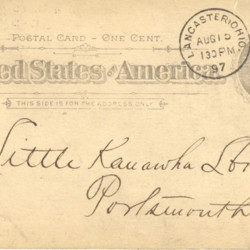 POSTAL CARD - ONE CENT.
United States of America
THIS SIDE IS FOR THE ADDRESS ONLY
LANCASTER, OHIO.
AUG 1
130 PM
97
Little Kanawha
Portsmouth